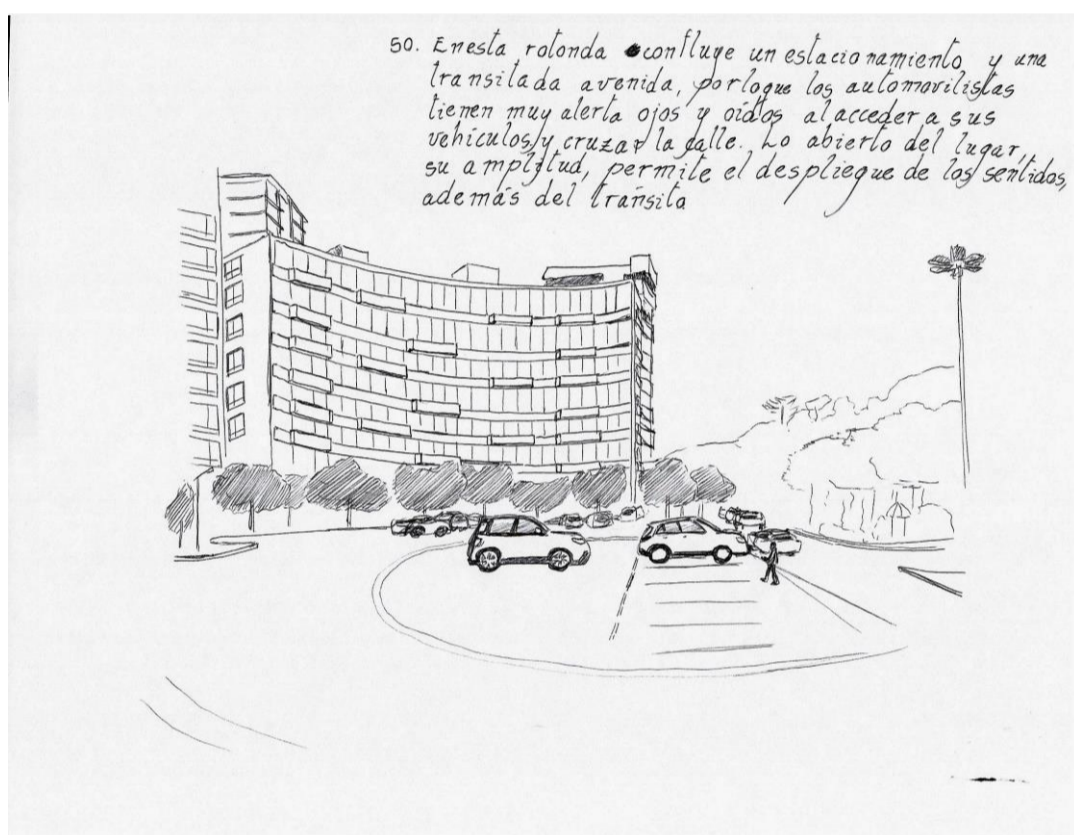 50. En esta rotonda confluye un estacionamiento y una
transitada avenida, por loque los automovilistas
tienen muy alerta ojos y oídos al acceder a sus
vehículos y cruzar la calle. Lo abierto del lugar,
su amplitud, permite el despliegue de los sentidos,
además del tránsito